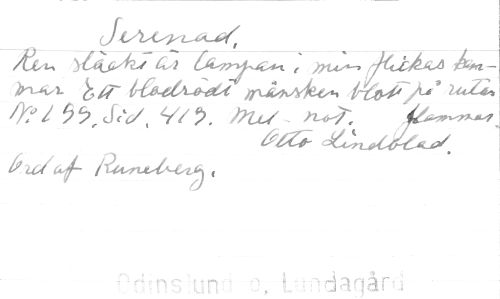 Serenad.
Ren släckt är lampan i min flickas kam-
mar Ett blodrödt månsken blott på rutan
No. 199. Sid. 419. Mel. not. flammar.
Otto Lindblad.
Ord af Runeberg.
Odinslund o, Lundagård